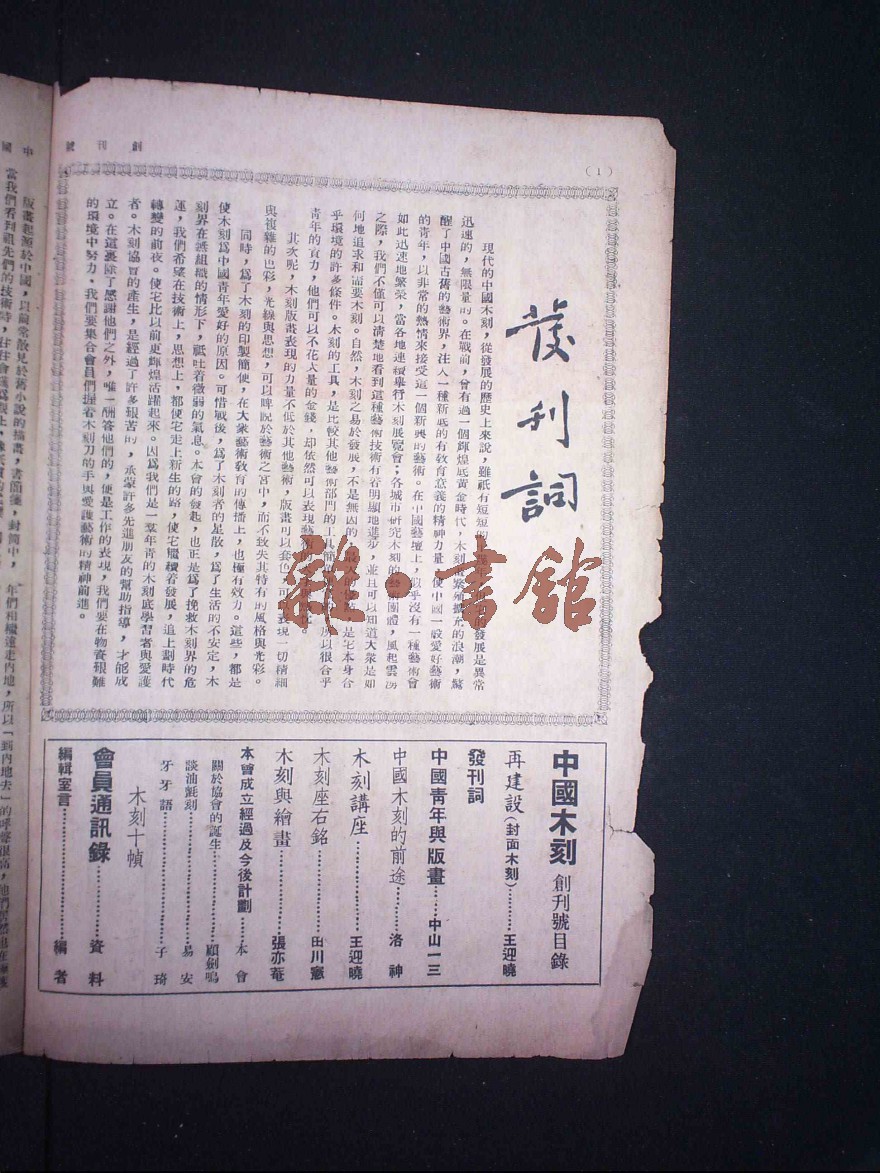 創刊號
(1)
發刊詞
現代的中國木刻，從發展的歷史上來說，雖祇有短短的 的發展是異常
迅速的，無限量的。在戰前，曾有過一個輝煌底黃金時代，木刻 繁殖擴充的浪潮，驚
醒了中國古舊的藝術界，注入一種新底的有敎育意義的精神力量，使中國一般愛好藝術
的青年，以非常的熱情來接受這一個新興的藝術。在中國藝壇上，似乎沒有一種藝術會
如此迅速地繁榮，當各地連續舉行木刻展覽會；各城市研究木刻的藝術團體，風起雲湧
之際，我們不僅可以清楚地看到這種藝術技術有着明顯地進步，並且可以知道大衆是如
何地追求和需要木刻。自然，木刻之易於發展，不是無因的， 是它本身合
乎環境的許多條件。木刻的工具，是比較其他藝術部門的工具簡 所以很合乎
青年的負力，他們可以不花大量的金錢，却依然可以表現藝術的
其次呢，木刻版畫表現的力量不低於其他藝術，版畫可以套色，可以表現一切精細
與複雜的色彩，光線與思想，可以睥睨於藝術之宮中，而不致失其特有的風格與光彩。
同時，爲了木刻的印製簡便，在大衆藝術敎育的傳播上，也極有效力。這些，都是
使木刻爲中國青年愛好的原因。可惜戰後，爲了木刻者的星散，爲了生活的不安定，木
刻界在無組織的情形下，祇吐着微弱的氣息。本會的發起，也正是爲了挽救木刻界的危
運，我們希望在技術上，思想上，都使它走上新生的路，使它繼續着發展，追上劃時代
轉變的前夜。使它比以前更輝煌活躍起來。因爲我們是一羣年青的木刻底學習者與愛護
者。木刻協會的產生，是經過了許多艱苦的，承蒙許多先進朋友的幫助指導，才能成
立。在這裏除了感謝他們之外，唯一酬答他們的，便是工作的表現，我們要在物資艱難
的環境中努力，我們要集合會員們握着木刻刀的手與愛護藝術的精神前進。
中國木刻 創刊號目錄
再建設（封面木刻）………王迎曉
發刊詞
中國青年與版畫……中山一三
中國木刻的前途………洛神
木刻講座………………王迎曉
木刻座右銘……………田川憲
木刻與繪畫……………張亦菴
本會成立經過及今後計劃……本會
關於協會的誕生…………顧劍鳴
談油氈刻………………易安
牙牙語…………………子琦
木刻十幀
會員通訊錄……………資料
編輯室言………………編者
中國
版畫起源於中國，以前常散見於舊小說的插畫，書簡箋，封筒中，
當我們看到祖先們的技術時，往往會
年們相繼遠走內地，所以「到內地去」的呼聲很高，他們
雜·書館